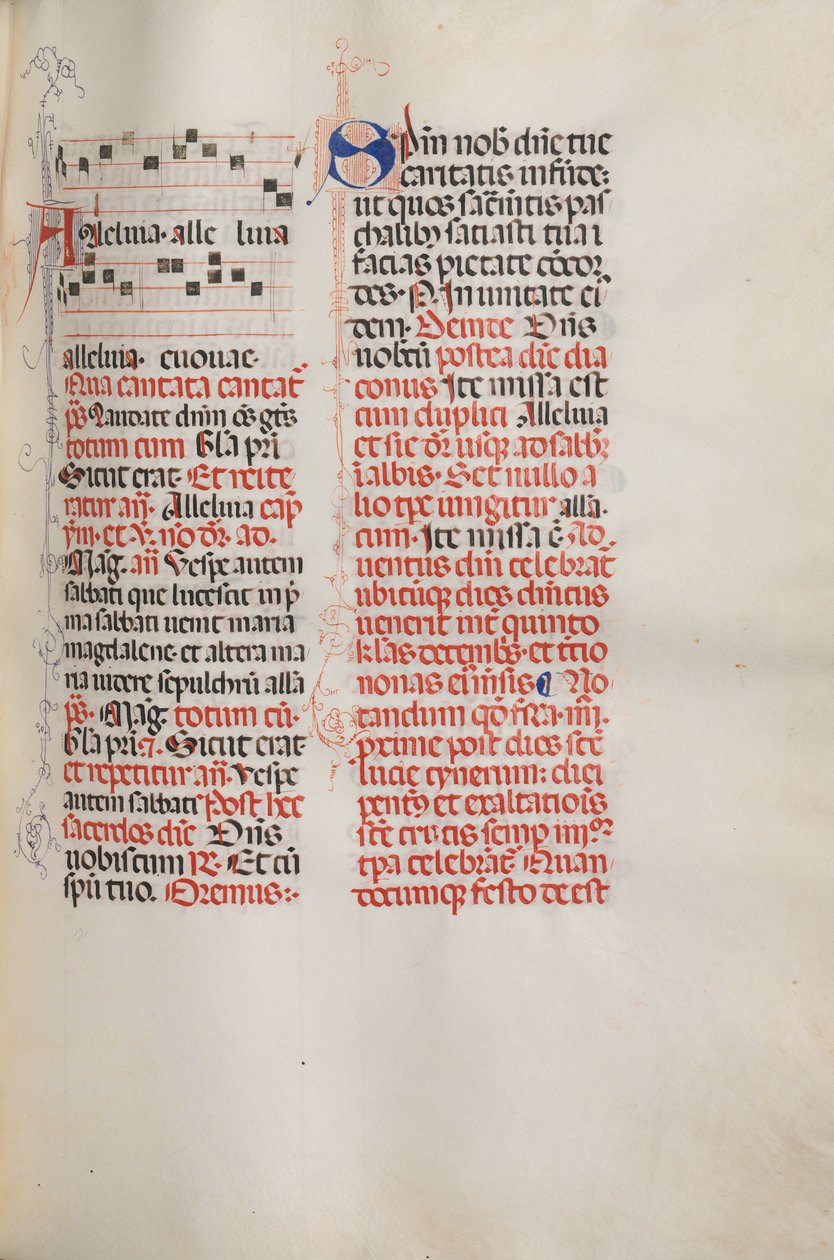 Alleluia· alle luia
alleluia· euouae·
Qua cantata cantat̄
p̄s Laudate dnm̄ om̄s gẽs
totum cum Gl̄a pri
Sicut erat· Et reite
ratur an̄· Alleluia cap̄
ym̄· et v̄· nō dr̄· ad·
Maḡ· an̄ Vespe autem
sabbati que lucescit in p̄
ma sabbati uenit maria
magdalene· et altera ma
ria uidere sepulchrū all̄a
p̄s· Maḡ· totum cū·
Gl̄a pri· ⁊· Sicut erat·
et repetitur an̄· Vespe
autem sabbati Post hec
sacerdos dic̄ Dn̄s
uobiscum R̄· Et cū
spū tuo· Oremus:·
Spm̄ nob̄ dn̄e tue
caritatis infūde:
ut quos sacm̄tis pas
chalib; satiasti tua
facias pietate cōcor
des· P. In unitate ei
dem· Deinde Dn̄s
uobcū postea dic̄ dia
conus Ite missa est
cum duplici Alleluia
et sic dr̄ usq; ad sabb̄
ī albis· Set nullo a
lio tpe iungitur all̄a·
cum· Ite missa ē· Ad
uentus dn̄i celebrat̄
ubicūq; dies dn̄icus
uenerit int̄ quinto
kl̄as decemb̄s· et t̄cio
nonas eiusis No
tandum qd̄ fera· iiii·
prime post dies sc̄e
lucie cynerum: diei
pentꝯ et exaltatiois
sc̄e crucis semp̄ iiiiᵒʳ
tpa celebrāt̄ Quan
documq; festo de est